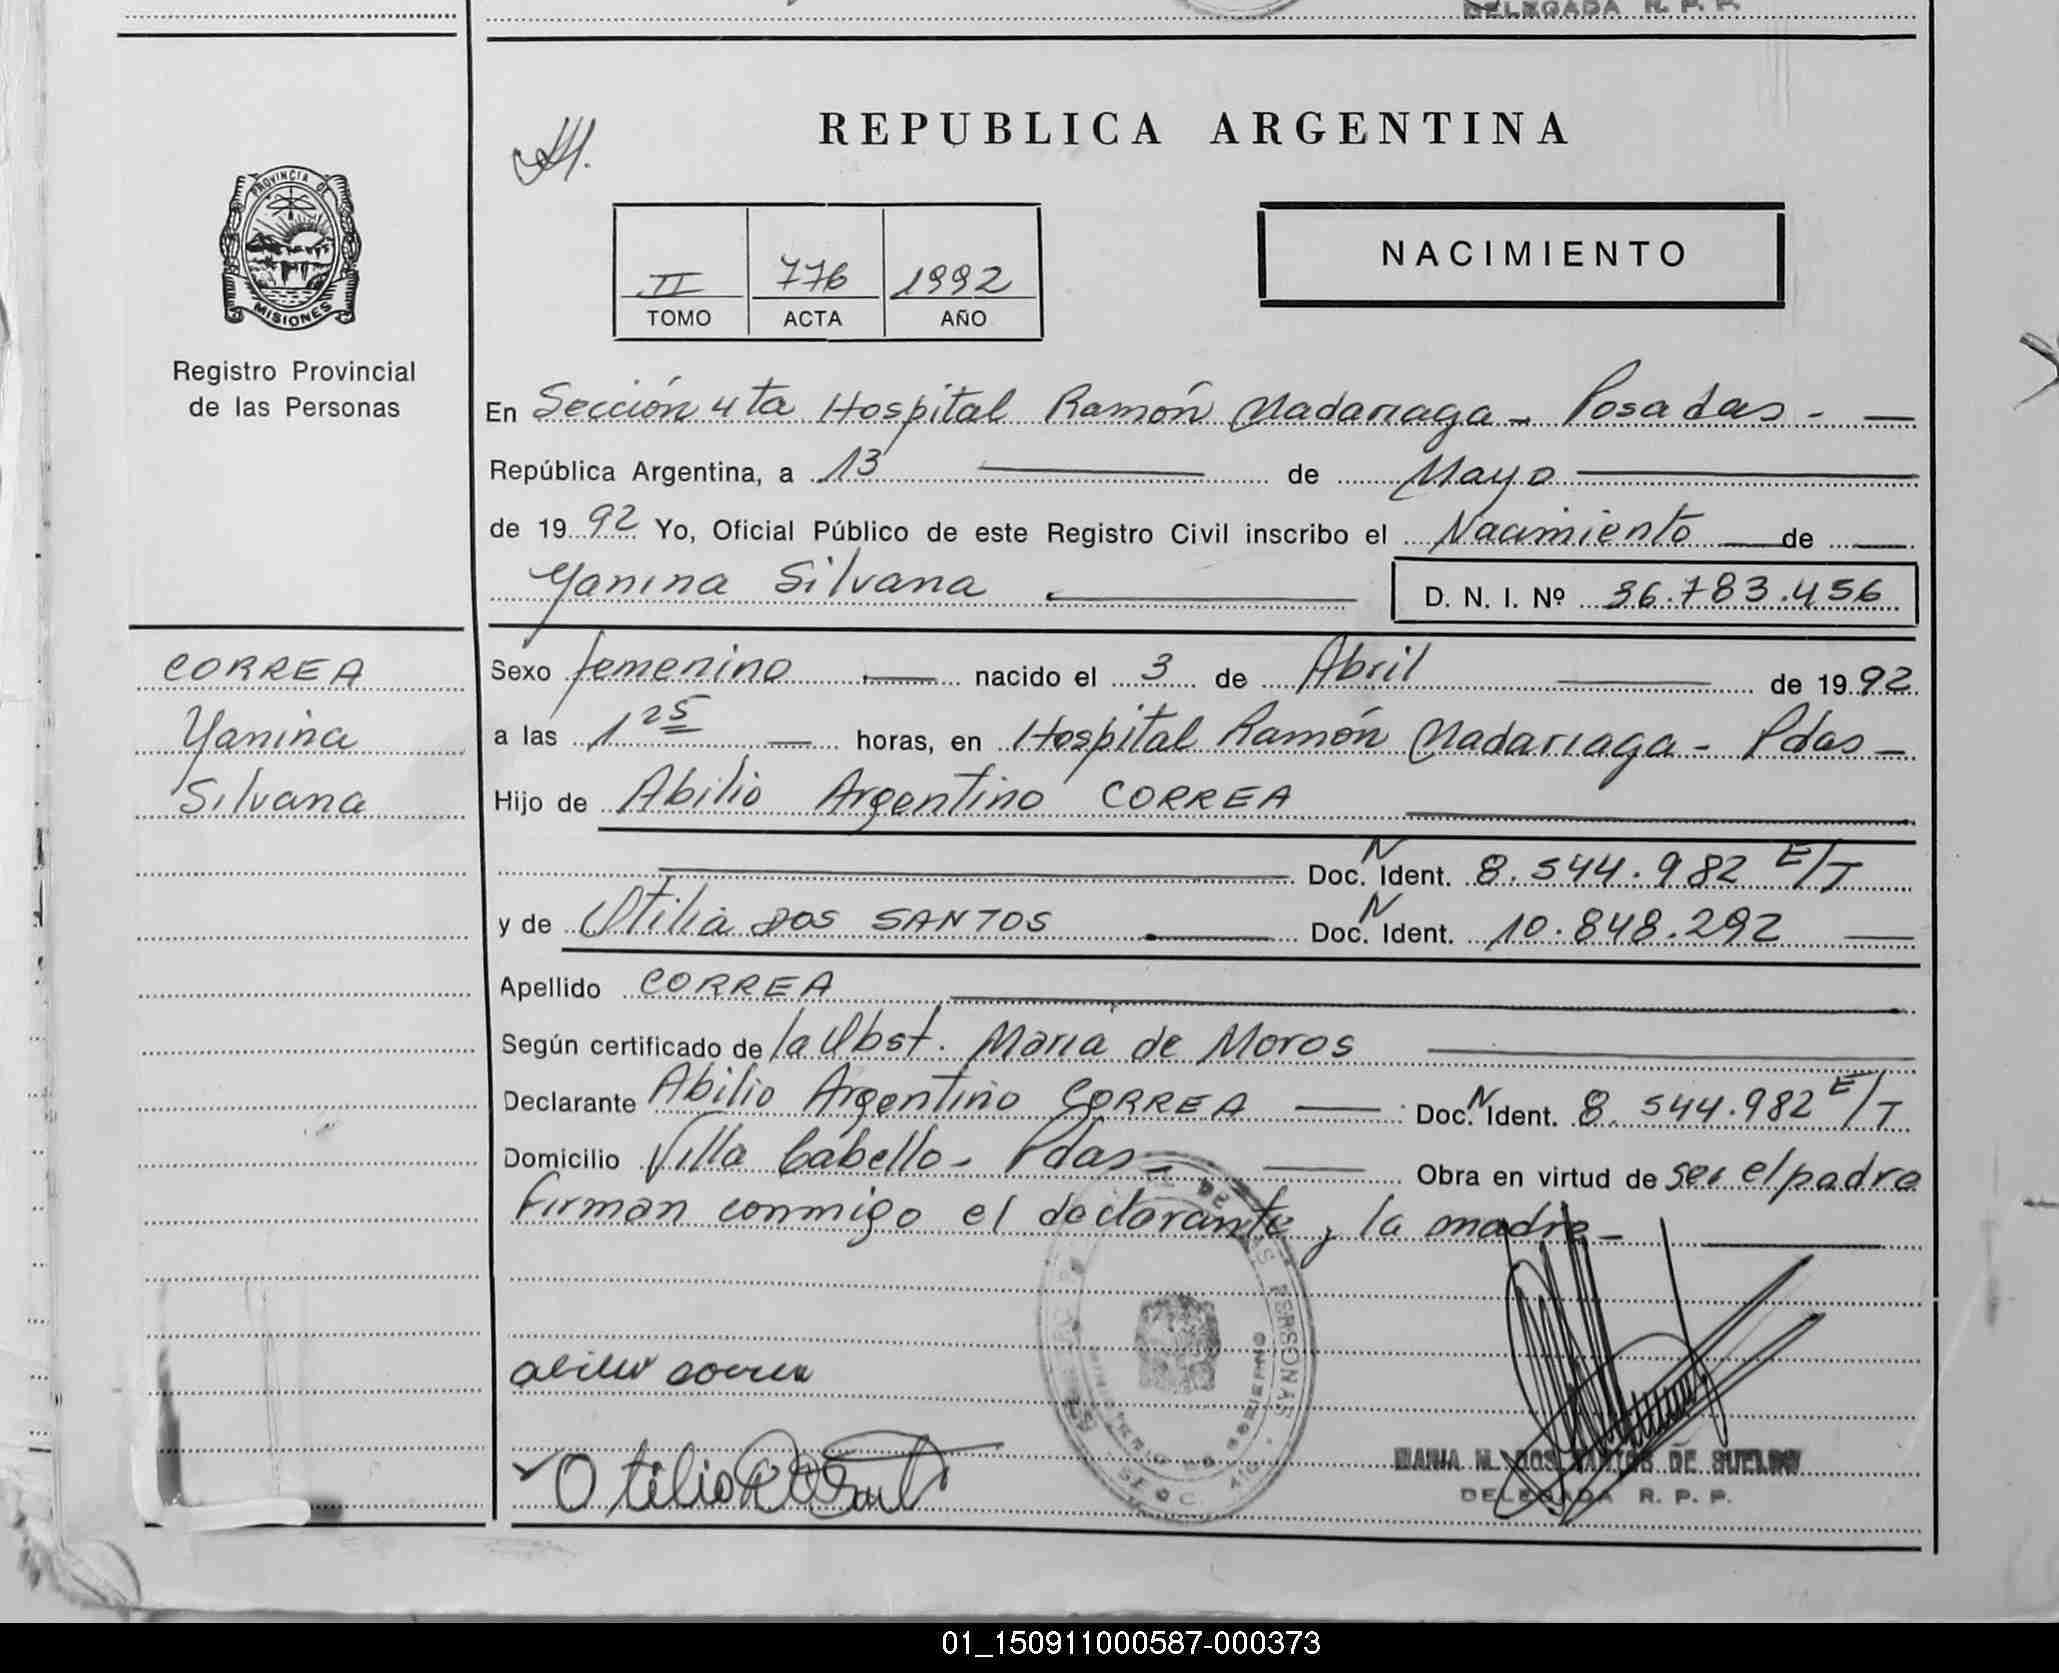 DELEGADA R. P. P.
REPUBLICA ARGENTINA
PROVINCIA DE
MISIONES
Registro Provincial
de las Personas
II 776 1992
TOMO ACTA AÑO
NACIMIENTO
En Sección 4ta Hospital Ramón Madariaga - Posadas -
República Argentina, a 13 de Mayo
de 1992 Yo, Oficial Público de este Registro Civil inscribo el Nacimiento de
Yanina Silvana D. N. I. Nº 36.783.456
CORREA
Yanina
Silvana
Sexo femenino nacido el 3 de Abril de 1992
a las 1 25 horas, en Hospital Ramón Madariaga - Pdas -
Hijo de Abilio Argentino CORREA
Doc. N Ident. 8.544.982 E/T
y de Otilia DOS SANTOS Doc. N Ident. 10.848.292
Apellido CORREA
Según certificado de la Obst. Maria de Moros
Declarante Abilio Argentino CORREA Doc. N Ident. 8.544.982 E/T
Domicilio Villa Cabello - Pdas - Obra en virtud de ser el padre
firman conmigo el declarante y la madre -
abilio correa
Otilia
MARIA M. DOS SANTOS DE
DELEGADA R. P. P.
01_150911000587-000373